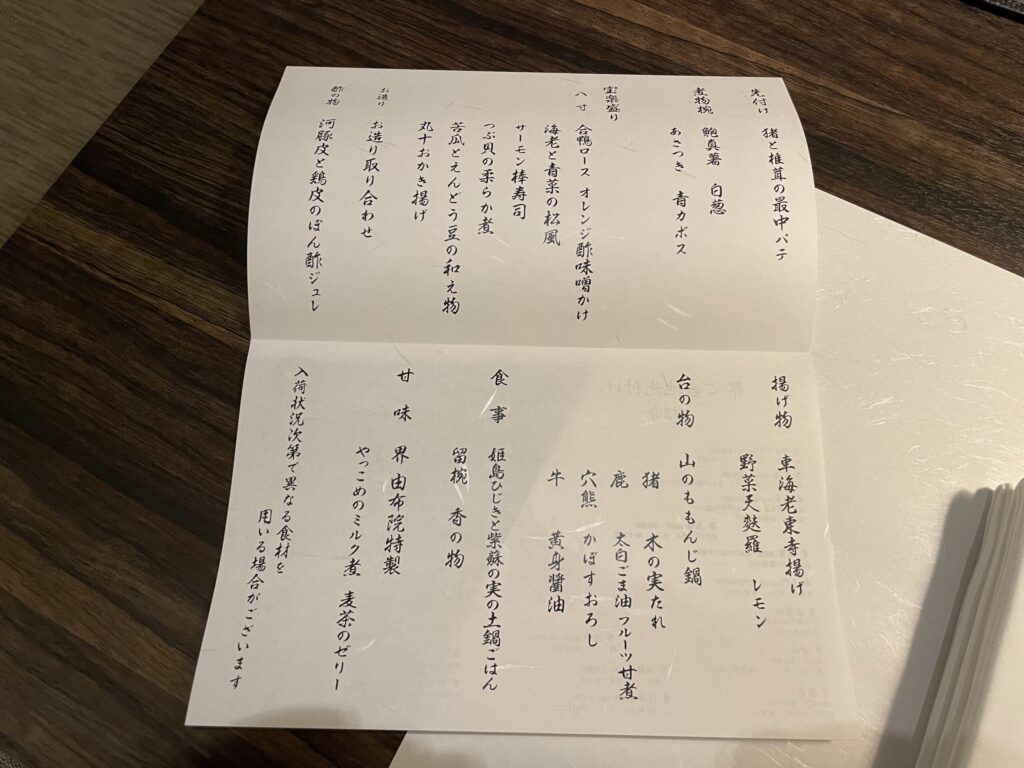 先付け 猪と椎茸の最中パテ
煮物椀 鮑真薯 白葱
あさつき 青カボス
宝楽盛り
八寸 合鴨ロース オレンジ酢味噌かけ
海老と青菜の松風
サーモン棒寿司
つぶ貝の柔らか煮
苦瓜とえんどう豆の和え物
丸十おかき揚げ
お造り お造り取り合わせ
酢の物 河豚皮と鶏皮のぽん酢ジュレ
揚げ物 車海老東寺揚げ
野菜天麩羅 レモン
台の物 山のももんじ鍋
猪 木の実たれ
鹿 太白ごま油 フルーツ甘煮
穴熊 かぼすおろし
牛 黄身醬油
食事 姫島ひじきと紫蘇の実の土鍋ごはん
留椀 香の物
甘味 界 由布院特製
やっこめのミルク煮 麦茶のゼリー
入荷状況次第で異なる食材を
用いる場合がございます